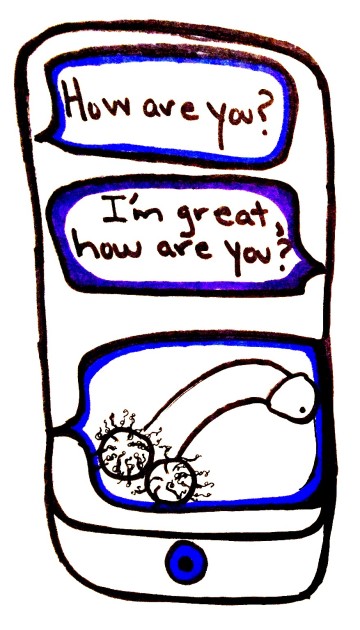 How are you?
I'm great,
how are you?